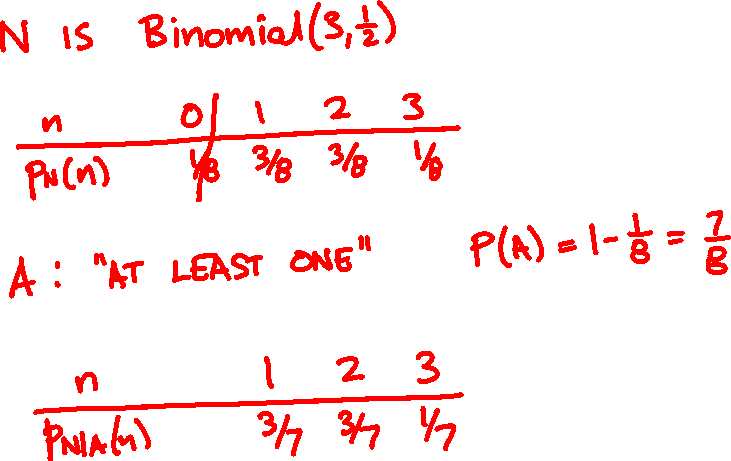 N IS Binomial(3,1/2)
n 0 1 2 3
PN(n) 1/8 3/8 3/8 1/8
A: "AT LEAST ONE" P(A) = 1-1/8 = 7/8
n 1 2 3
PN|A(n) 3/7 3/7 1/7